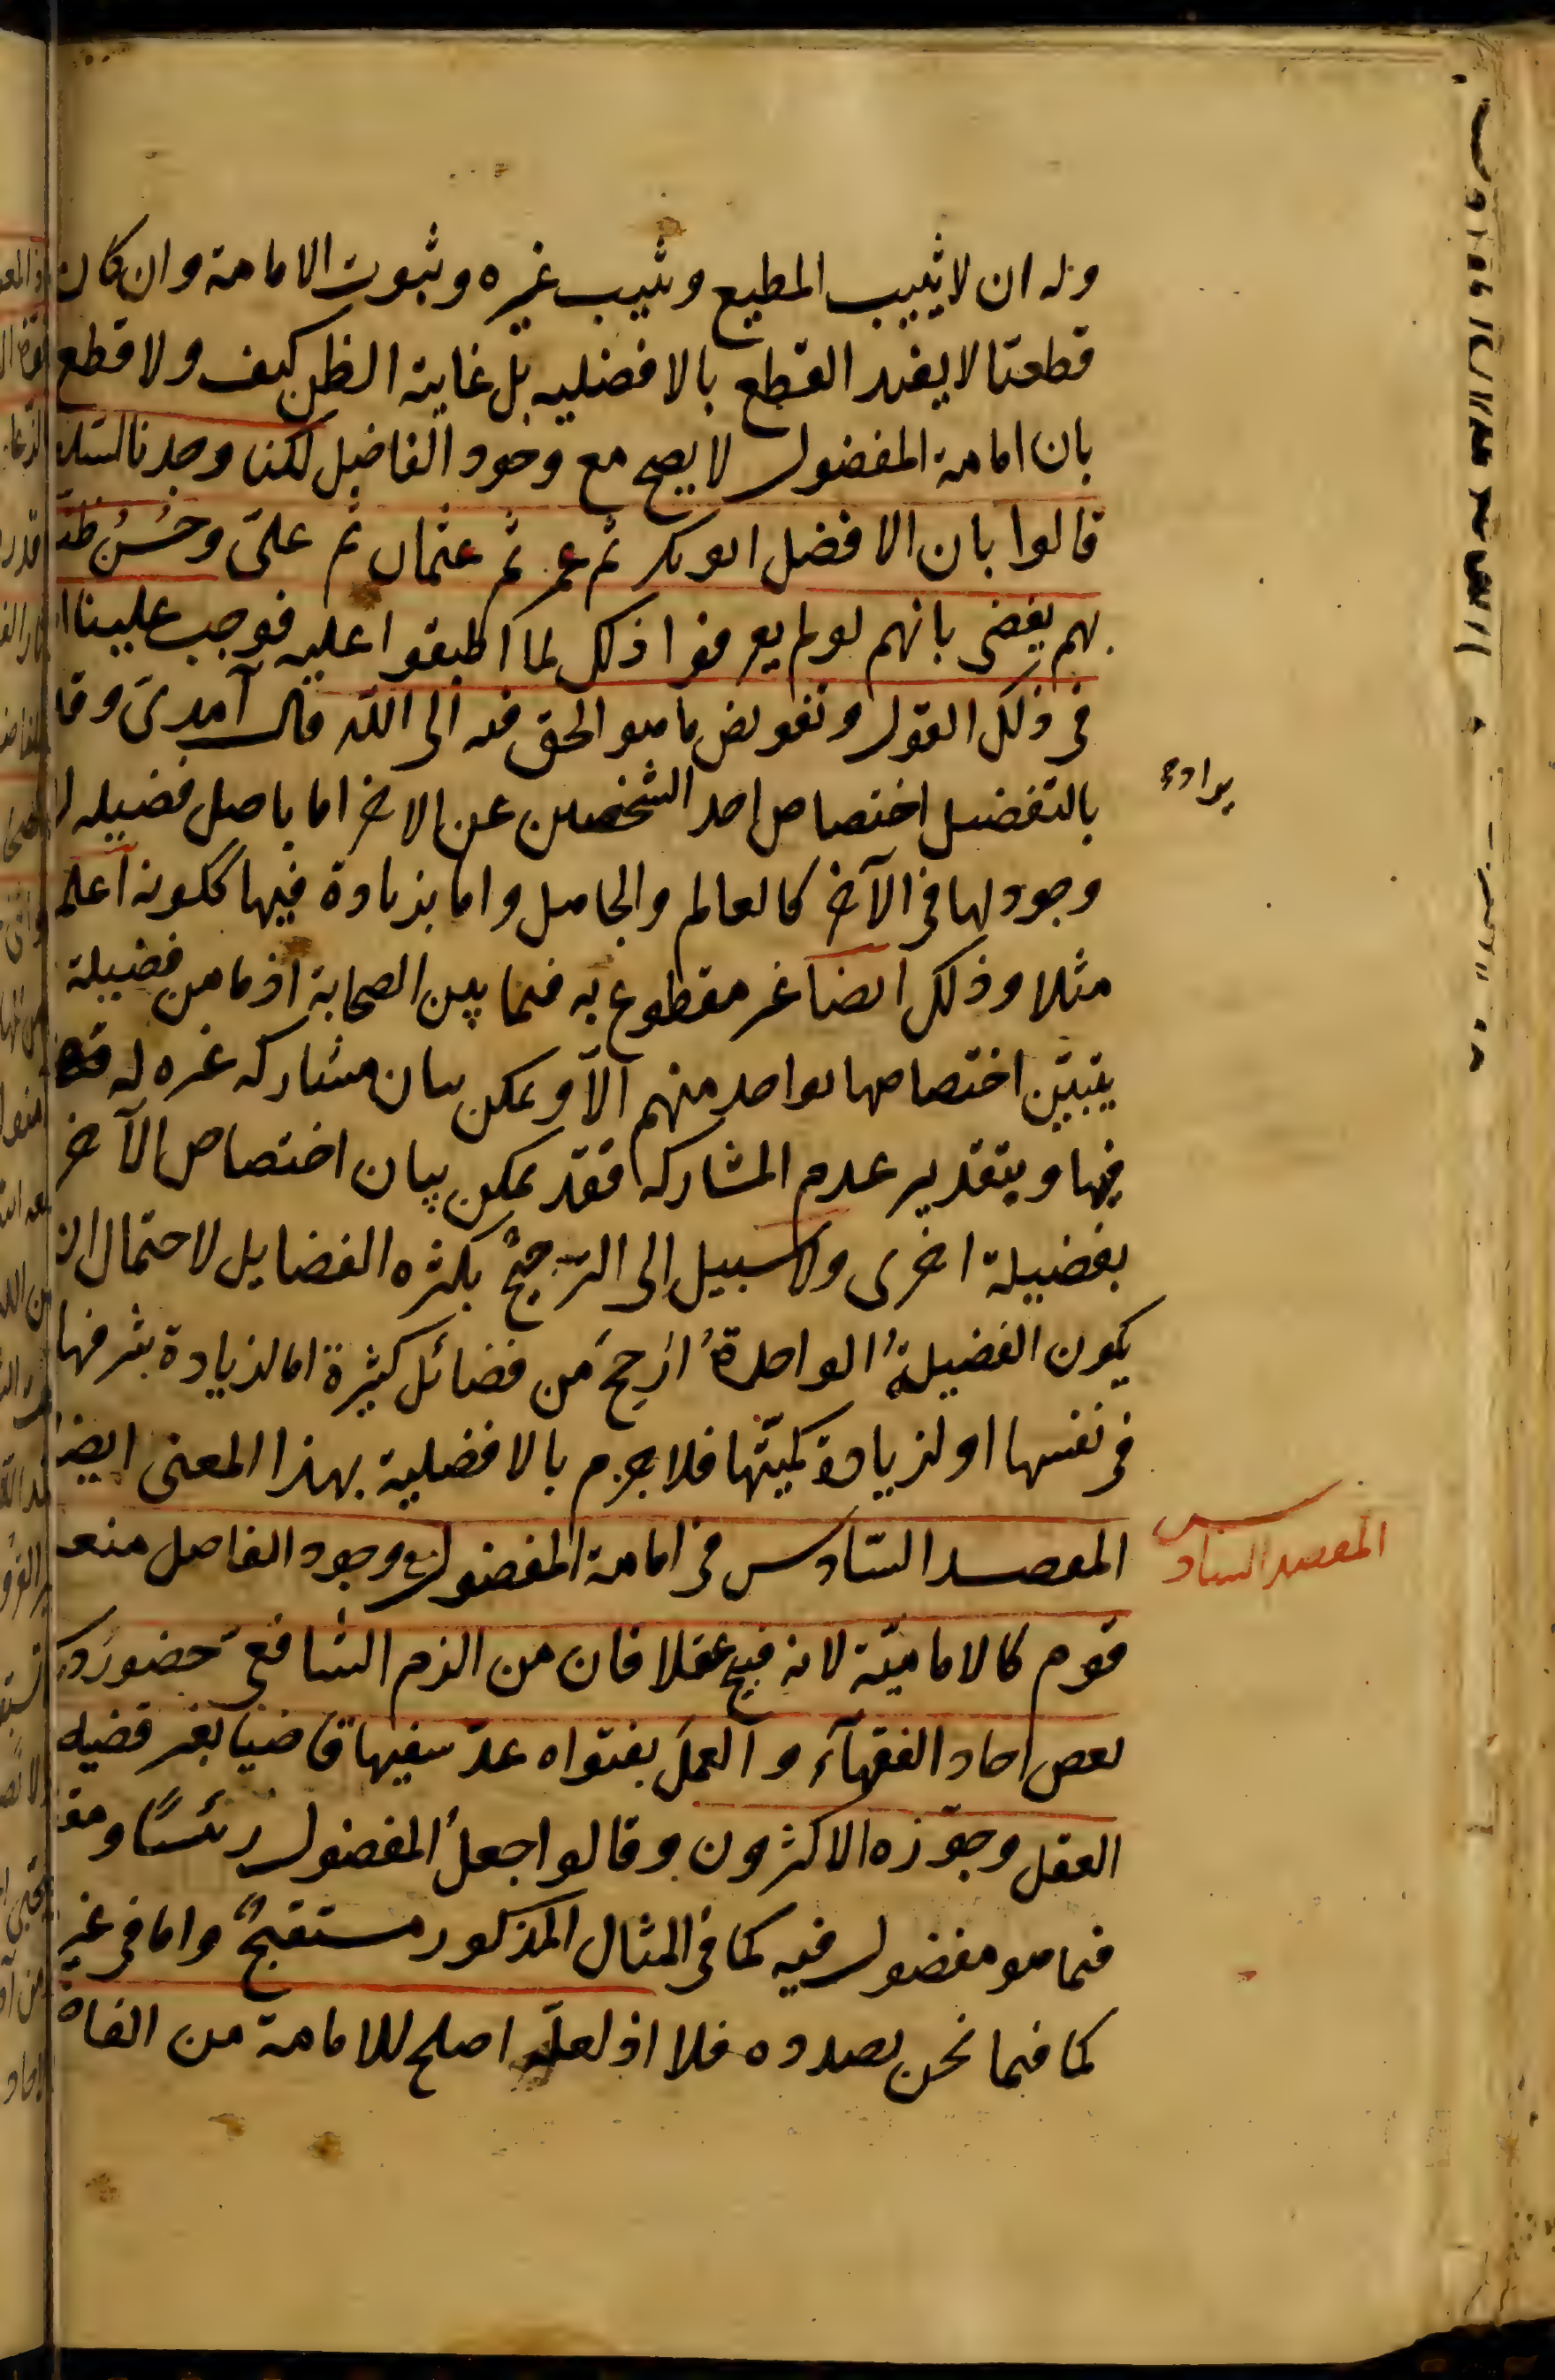 وله ان لا يثيب المطيع ويثيب غيره وثبوت الامامة وان كان
قطعيّا لا يفيد القطع بالافضليه بل غاية الظن كيف ولا قطع
بان امامة المفضول لا يصح مع وجود الفاضل لكنا وجدنا السلف
قالوا بان الافضل ابو بكر ثم عمر ثم عثمان ثم عليّ وحُسْنُ ظننا
بهم يقضى بانهم لو لم يعرفوا ذلك لما اطبقوا عليه فوجب علينا
فى ذلك القول وتفويض ما هو الحق فيه الى الله قال آمدىّ وقد
يراد
بالتفضيل اختصاص احد الشخصين عن الاخر اما باصل فضيله لا
وجود لها فى الآخر كالعالم والجاهل واما بزيادة فيها ككونه اعلم
مثلا وذلك ايضا غير مقطوع به فيما بين الصحابة اذ ما من فضيلة
يتبيّن اختصاصها بواحد منهم الّا ويمكن بيان مشاركه غيره له
فيها وبتقدير عدم المشاركه فقد يمكن بيان اختصاص الآخر
بفضيلة اخرى ولا سبيل الى الترجيح بكثره الفضايل لاحتمال ان
يكون الفضيلةُ الواحدةُ ارجحَ من فضائل كثيرة اما لزيادة شرفها
فى نفسها او لزيادة كميّتها فلا جزم بالافضلية بهذا المعنى ايضا
المقصد السادس
المقصد السّادس فى امامة المفضول مع وجود الفاضل منعه
قوم كالاماميّة لانه قبيح عقلا فان من الزم الشافعىّ حضور درس
بعض احاد الفقهآء والعمل بفتواه عدّ سفيها قاضيا بغير قضيه
العقل وجوّزه الاكثرون وقالوا جعلُ المفضول رئيسًا
فيما هو مفضول فيه كما فى المثال المذكور مستقبحٌ واما فى غيره
كما فيما نحن بصدده فلا اذ لعلّه اصلح للامامة من